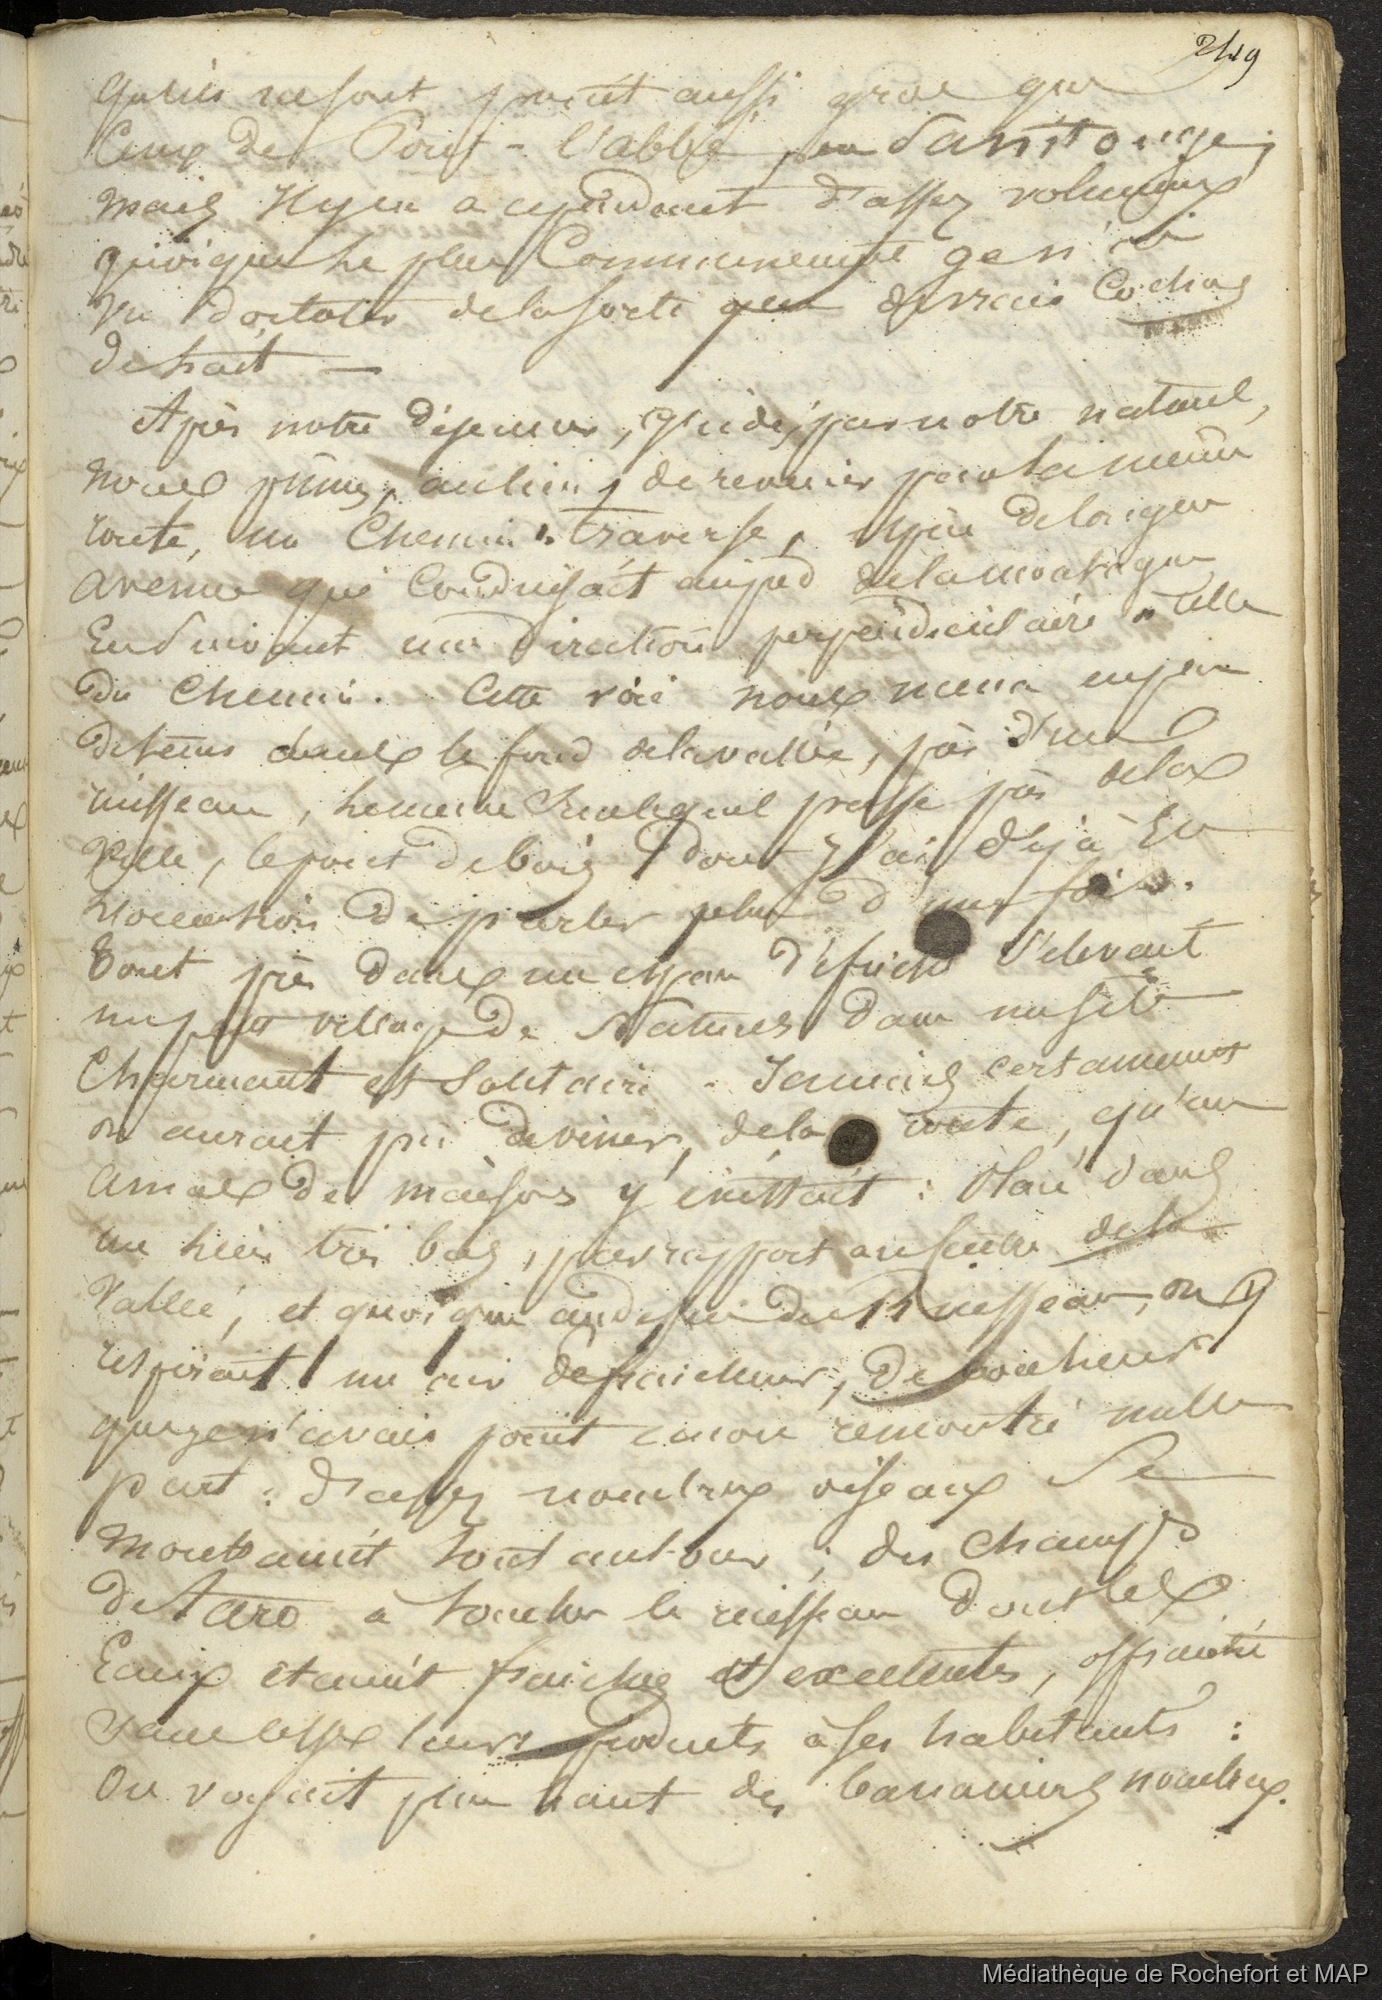 249
qu'ils ne sont point aussi gros que
Ceux de Pont-l'abbé, en Saintonge;
mais Il y en a cependant d'assez volumineux
quoique le plus Communément je n'ai
vu d'arbres de la sorte que
de haut —
Après notre déjeuner, guidés par notre naturel,
nous prîmes, au lieu de revenir par la même
route, un Chemin traverse, espèce de longue
avenue qui Conduisait au pied de la montagne
En suivant une direction perpendiculaire à celle
du Chemin. Cette voie nous mena en peu
de tems dans le fond de la vallée, près d'un
ruisseau, le même sur lequel passe près de la
Ville, le pont de bois dont j'ai déjà Eu
l'occasion de parler plus d'une fois.
Tout près dans un espace défriché s'élevait
un petit village de Naturels dans un site
Charmant et Solitaire - Jamais certainement
on aurait pu deviner, de la route, qu'un
amas de maisons y existait : Placé dans
un lieu très bas, par rapport au sable de la
Vallée, et quoique au dessus du Ruisseau, on y
respirait un air de fraîcheur, de bonheur
que je n'avais point encore rencontré nulle
part : d'assez nombreux oiseaux se
montraient tout autour ; des Champs
de taro à toucher le ruisseau dont les
Eaux étaient fraîches et excellentes, offraient
sans cesse leurs produits à ses habitants :
On voyait plus haut des bananiers nombreux.
Médiathèque de Rochefort et MAP